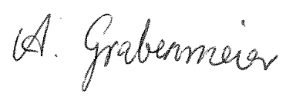 A. Grabenmeier